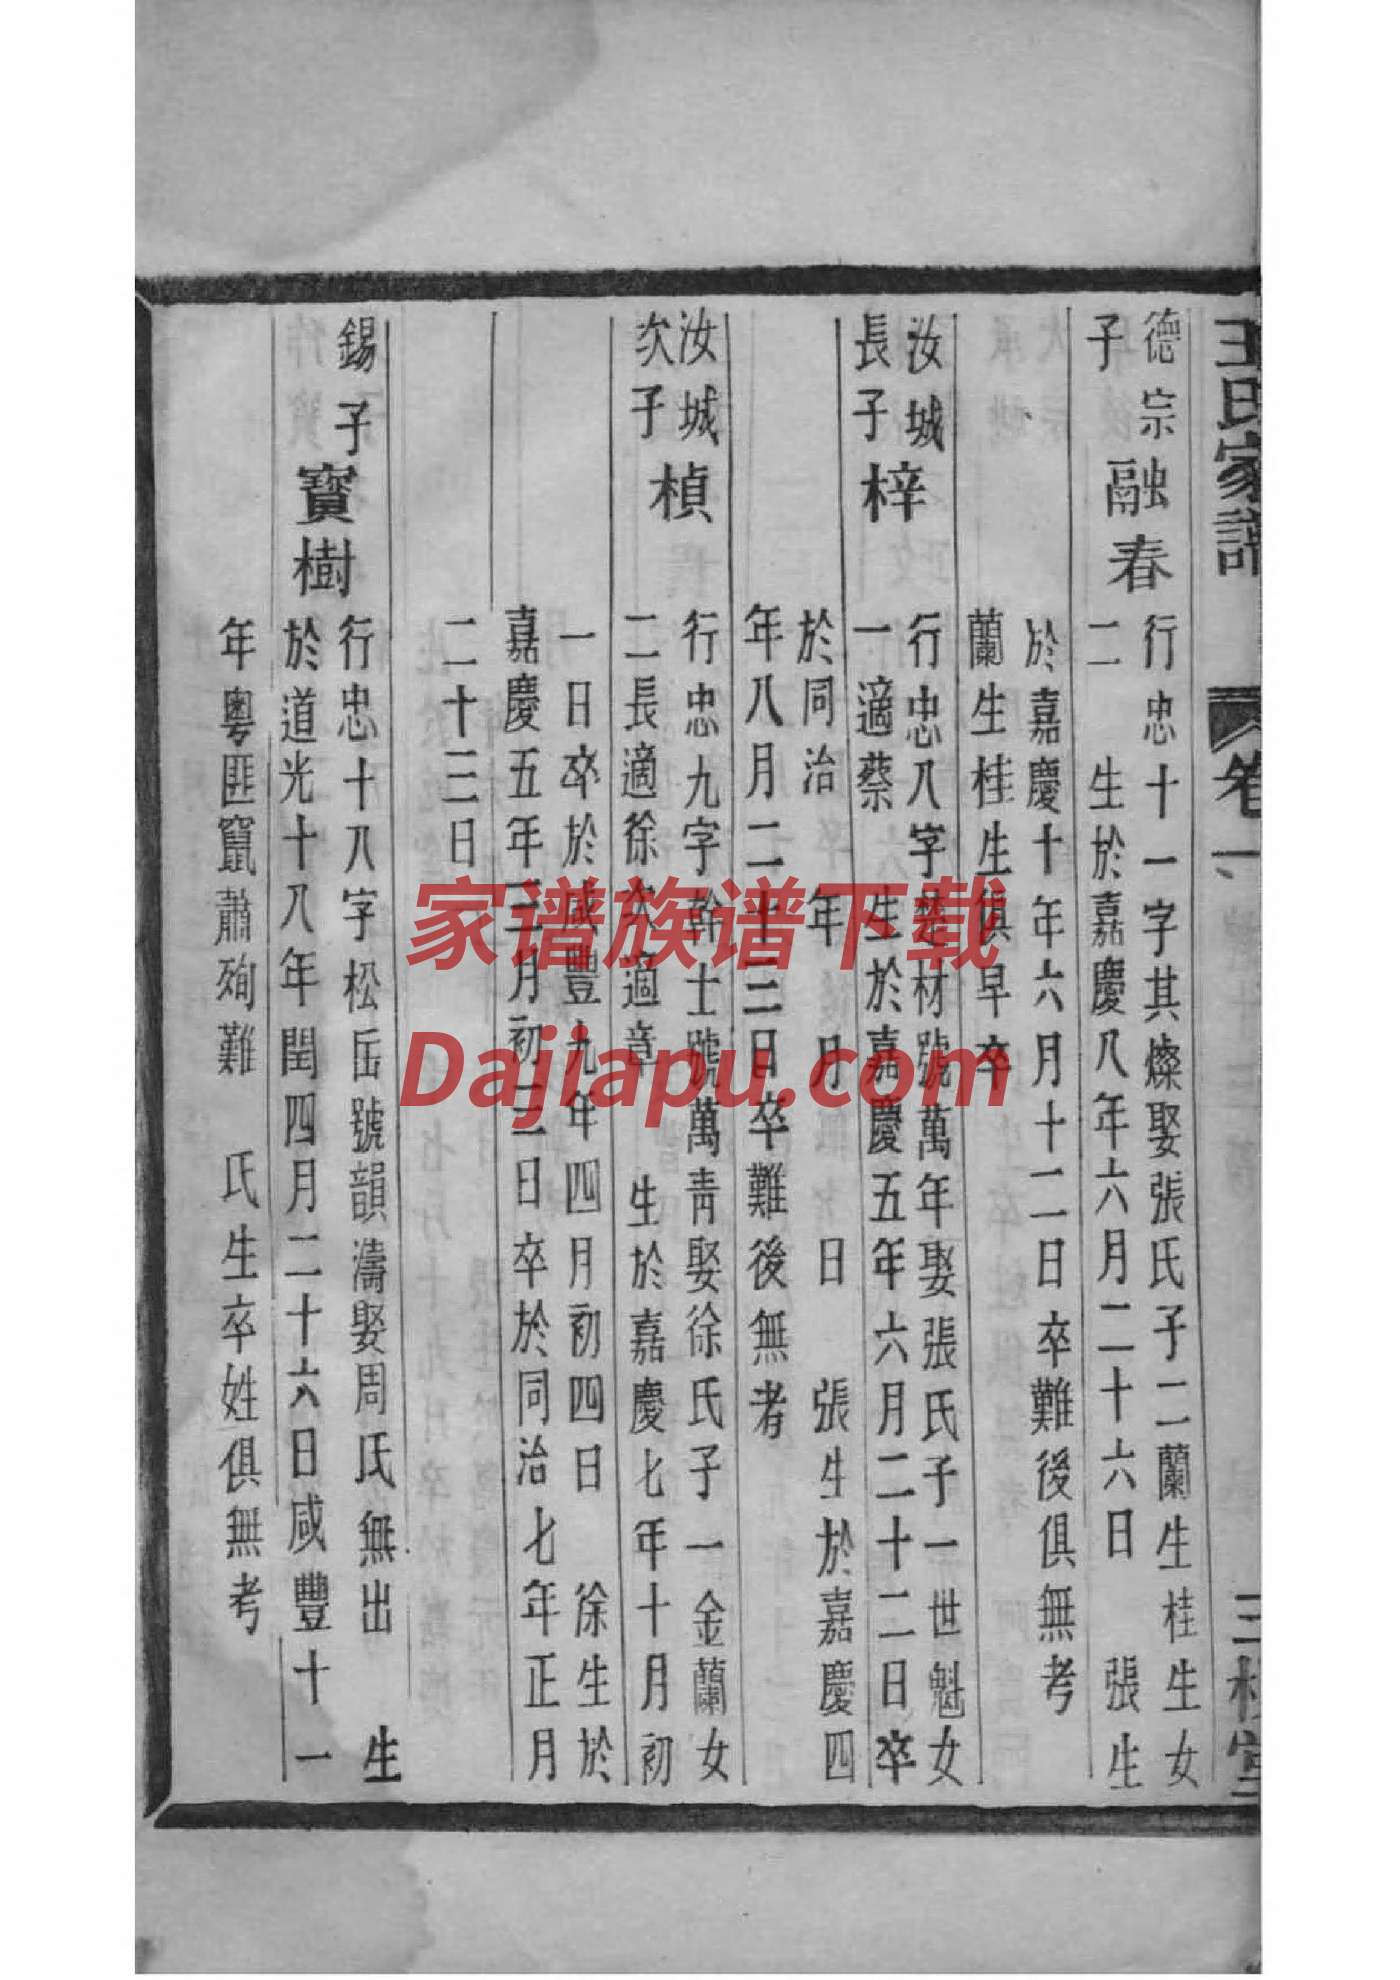 王氏家譜
卷一
三槐堂
德宗
子
融春
行忠十一字其燦娶張氏子二蘭生桂生女
二　生於嘉慶八年六月二十六日　張生
於嘉慶十年六月十二日卒難後俱無考
蘭生桂生俱早卒
汝城
長子
梓
行忠八字楚材號萬年娶張氏子一世魁女
一適蔡　生於嘉慶五年六月二十二日卒
於同治　年　月　日　張生於嘉慶四
年八月二十三日卒難後無考
汝城
次子
楨
行忠九字幹士號萬青娶徐氏子一金蘭女
二長適徐次適章　生於嘉慶七年十月初
一日卒於咸豐九年四月初四日　徐生於
嘉慶五年三月初三日卒於同治七年正月
二十三日
錫子
寶樹
行忠十八字松岳號韻濤娶周氏無出　生
於道光十八年閏四月二十六日咸豐十一
年粵匪竄蕭殉難　氏生卒姓俱無考
家谱族谱下载
Dajiapu.com